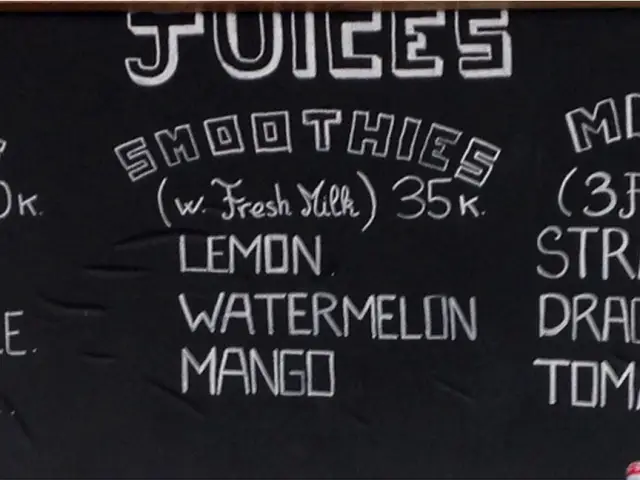 JUICES
SMOOTHIES
(w. Fresh Milk) 35K.
LEMON
WATERMELON
MANGO
0K.
E.
M
(3
STR
DRA
TOM